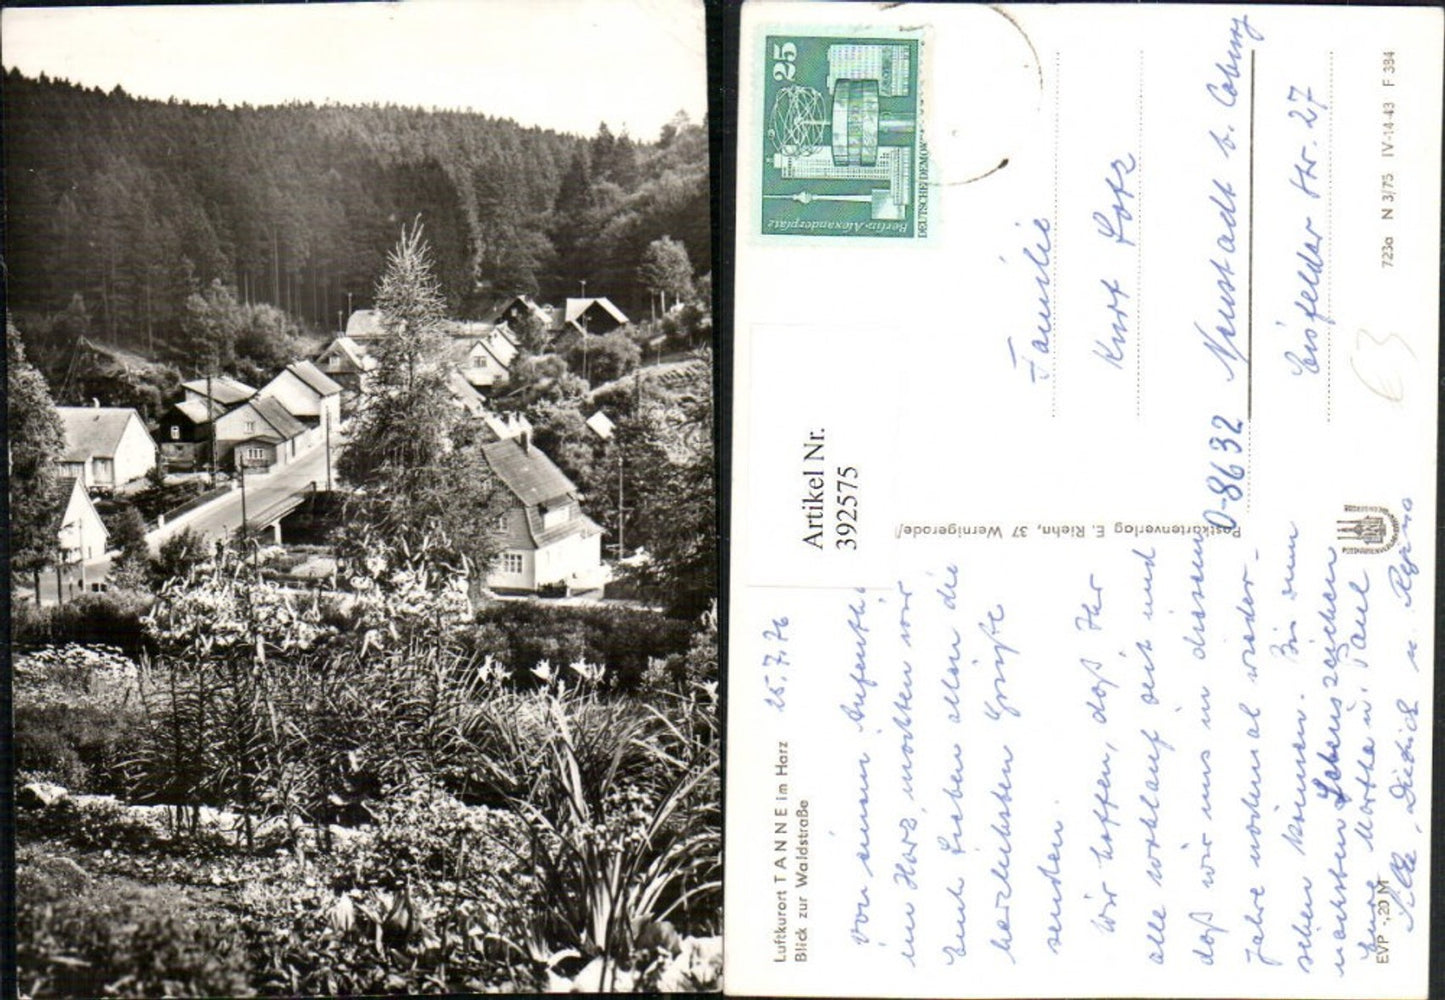 Luftkurort TANNE im Harz
Blick zur Waldstraße
25.7.76
Von einem Aufenth
im Harz, möchten wir
Euch Lieben allen die
herzlichsten Grüße
senden.
Wir hoffen, daß Ihr
alle wohlauf seit und
daß wir uns in diesem
Jahre nochmal wieder-
sehen können. Bis zum
nächsten Lebenszeichen
Eure Martha u. Paul
Silke, Dietrich u. Regina
EVP -,20 M
Postkartenverlag E. Riehn, 37 Wernigerode/
Artikel Nr.
392575
25
Berlin-Alexanderplatz
DEUTSCHE DEMOK
Familie
Kurt Lotz
D-8632 Neustadt b. Coburg
Eisfelder Str. 27
723a N 3/75 IV-14-43 F 384
€3